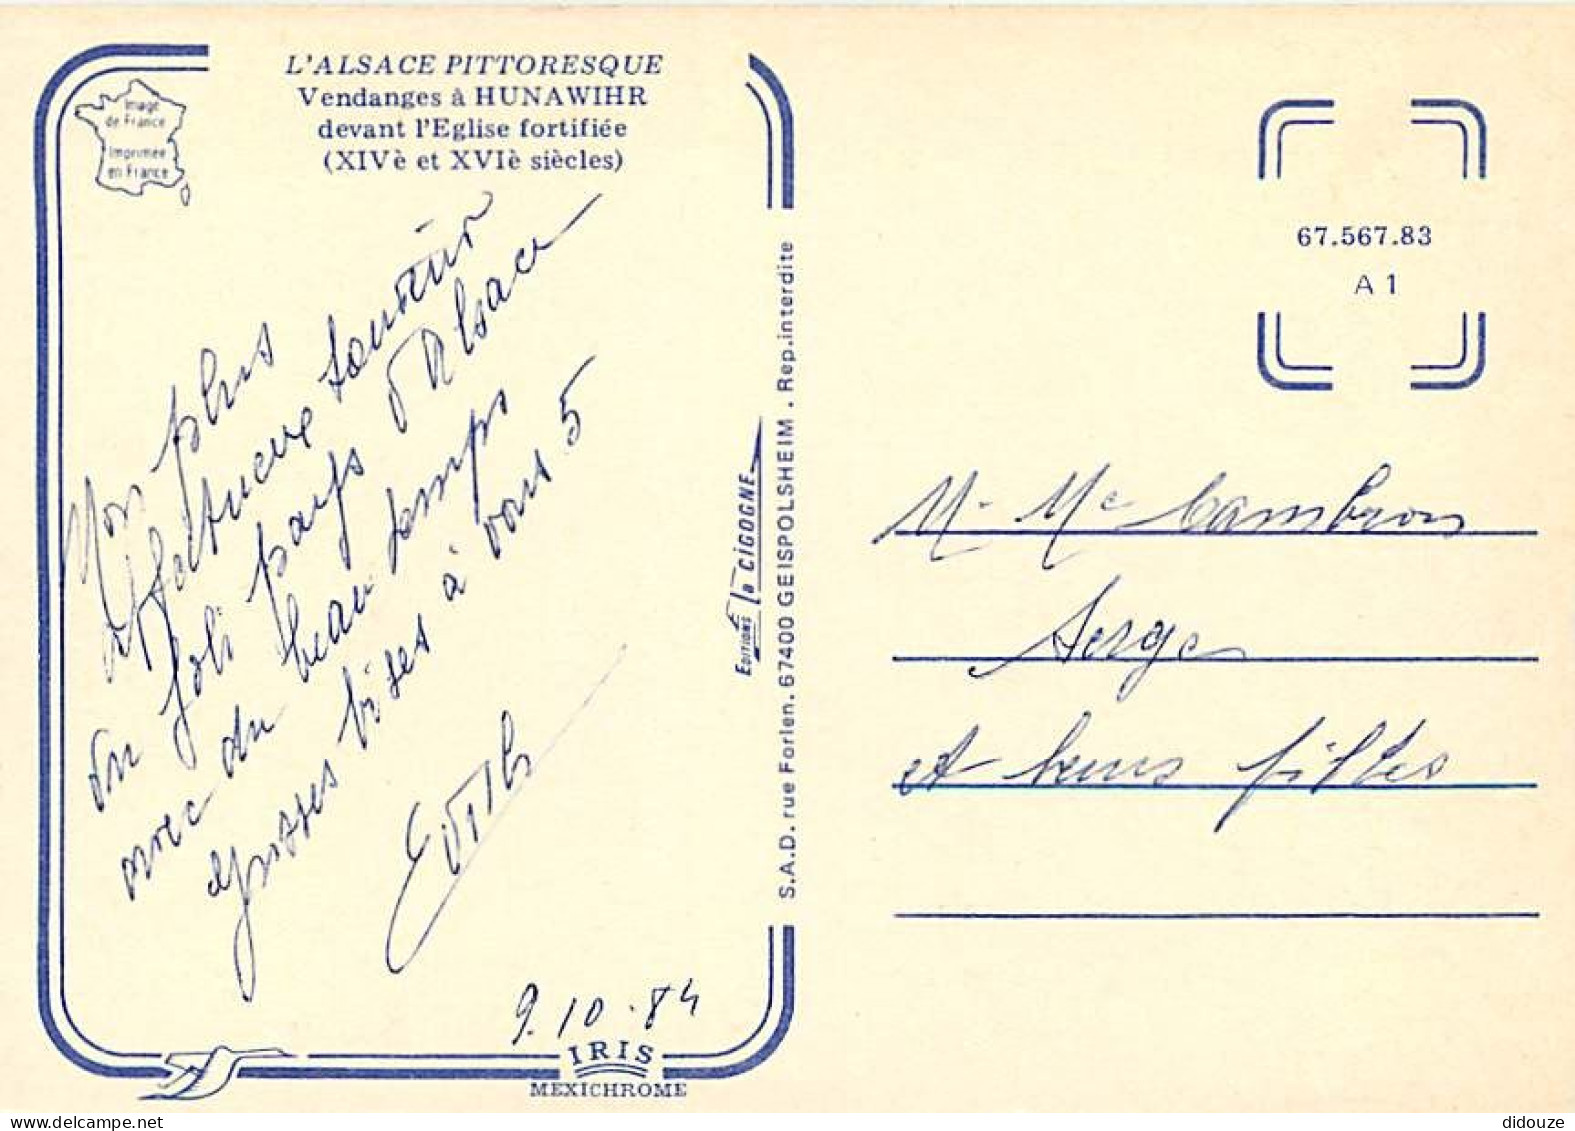 L'ALSACE PITTORESQUE
Vendanges à HUNAWIHR
devant l'Eglise fortifiée
(XIVè et XVIè siècles)
Image
de France
Imprimée
en France
Mon plus
affectueux souvenir
du joli pays d'Alsace
avec du beau temps
grosses bises à vous 5
Edith
9.10.84
IRIS
MEXICHROME
EDITIONS la CIGOGNE
S.A.D. rue Forlen. 67400 GEISPOLSHEIM . Rep.interdite
67.567.83
A 1
M. Me Cambron
Serge
et leurs filles
didouze